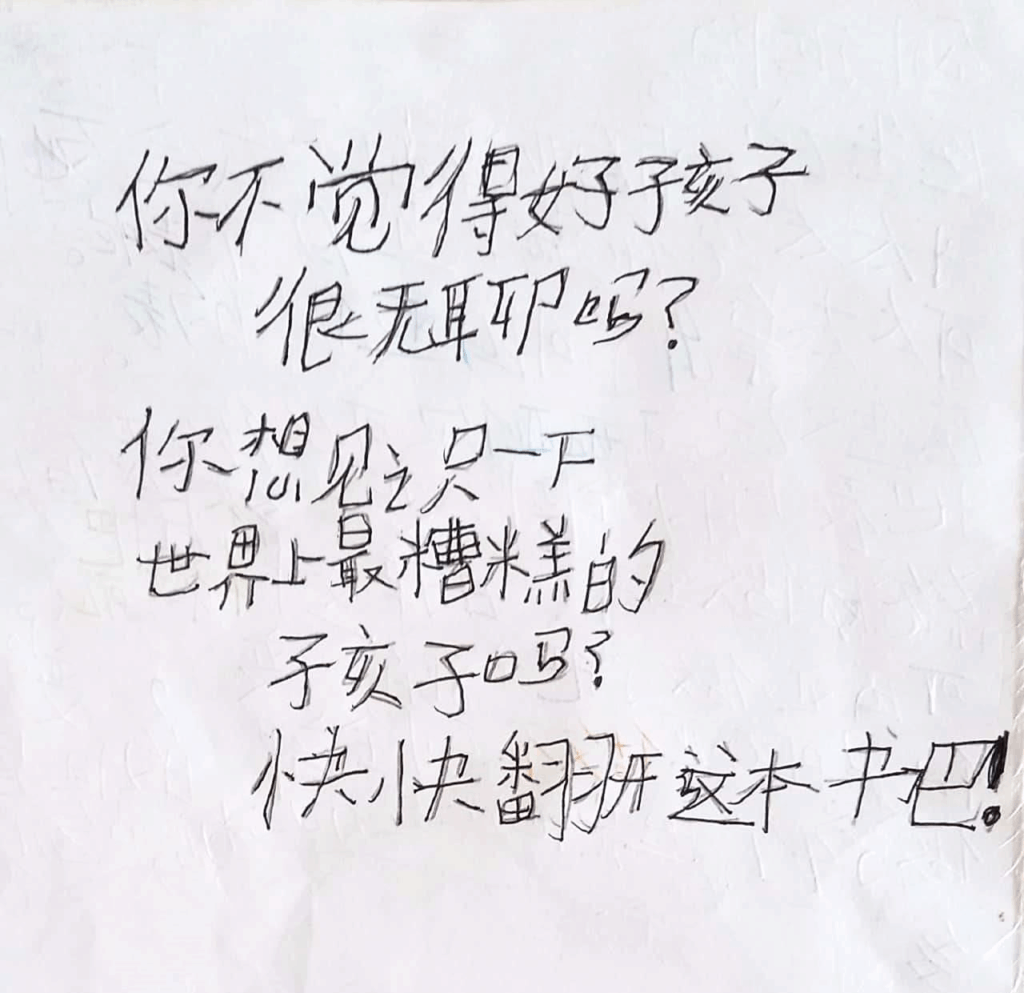 你不觉得好孩子
很无聊吗?
你想见识一下
世界上最糟糕的
孩子吗?
快快翻开这本书吧!